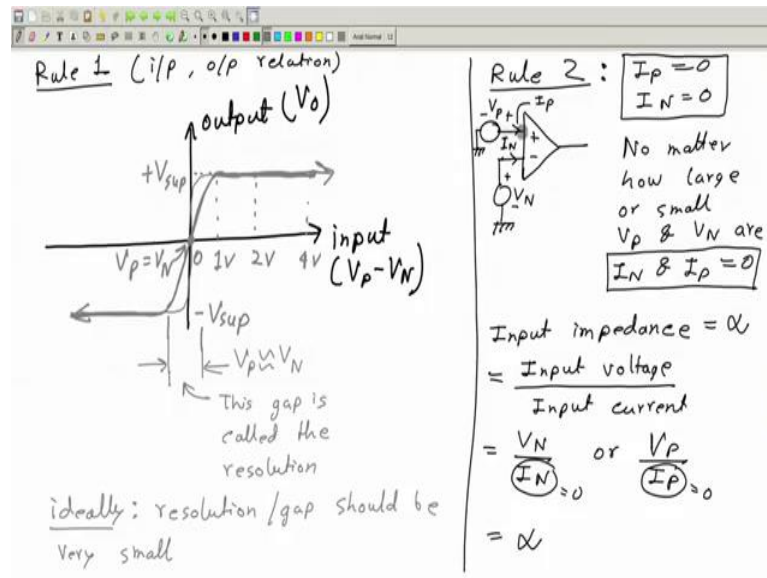 Rule 1 (i/p, o/p relation)
output (Vo)
+Vsup
Vp=VN
0 1V 2V 4V
input
(Vp-VN)
-Vsup
Vp≈VN
This gap is
called the
resolution
ideally: resolution/gap should be
very small
Rule 2 :
IP=0
IN=0
-Vp+
IP
IN
+
-
+
VN
-
No matter
how large
or small
Vp & VN are
IN & IP=0
Input impedance = ∝
= Input voltage
Input current
= VN or VP
IN=0 IP=0
= ∝